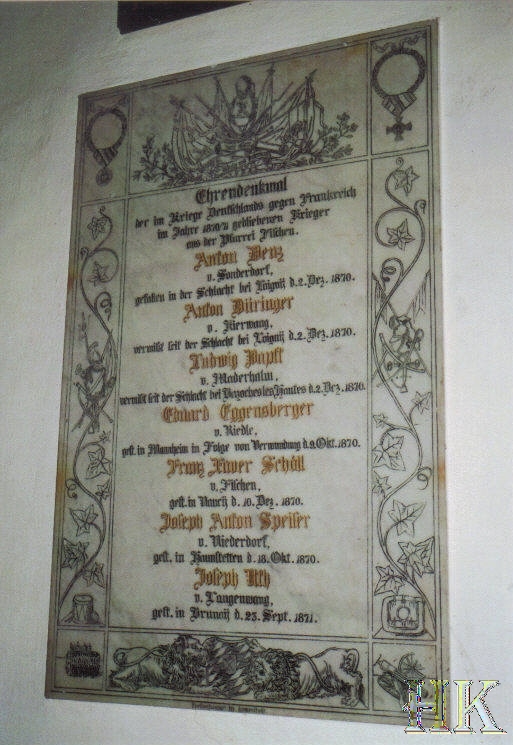 Ehrendenkmal
der im Kriege Deutschlands gegen Frankreich
im Jahre 1870/71 gebliebenen Krieger
aus der Pfarrei Fischen.
Anton Benz
v. Sonderdorf,
gefallen in der Schlacht bei Loignij d. 2. Dez. 1870.
Anton Düringer
v. Kierwang,
vermißt seit der Schlacht bei Loignij d. 2. Dez. 1870.
Ludwig Papst
v. Maderhalm,
vermißt seit der Schlacht bei Bazoches les Hautes d. 2. Dez. 1870.
Eduard Eggensberger
v. Riedle,
gest. in Mannheim in Folge von Verwundung d. 9. Okt. 1870.
Franz Xaver Schöll
v. Fischen,
gest. in Nancij d. 10. Dez. 1870.
Joseph Anton Speiser
v. Niederdorf,
gest. in Haunstetten d. 18. Okt. 1870.
Joseph Uth
v. Langenwang,
gest. in Brunoij d. 23. Sept. 1871.
HK